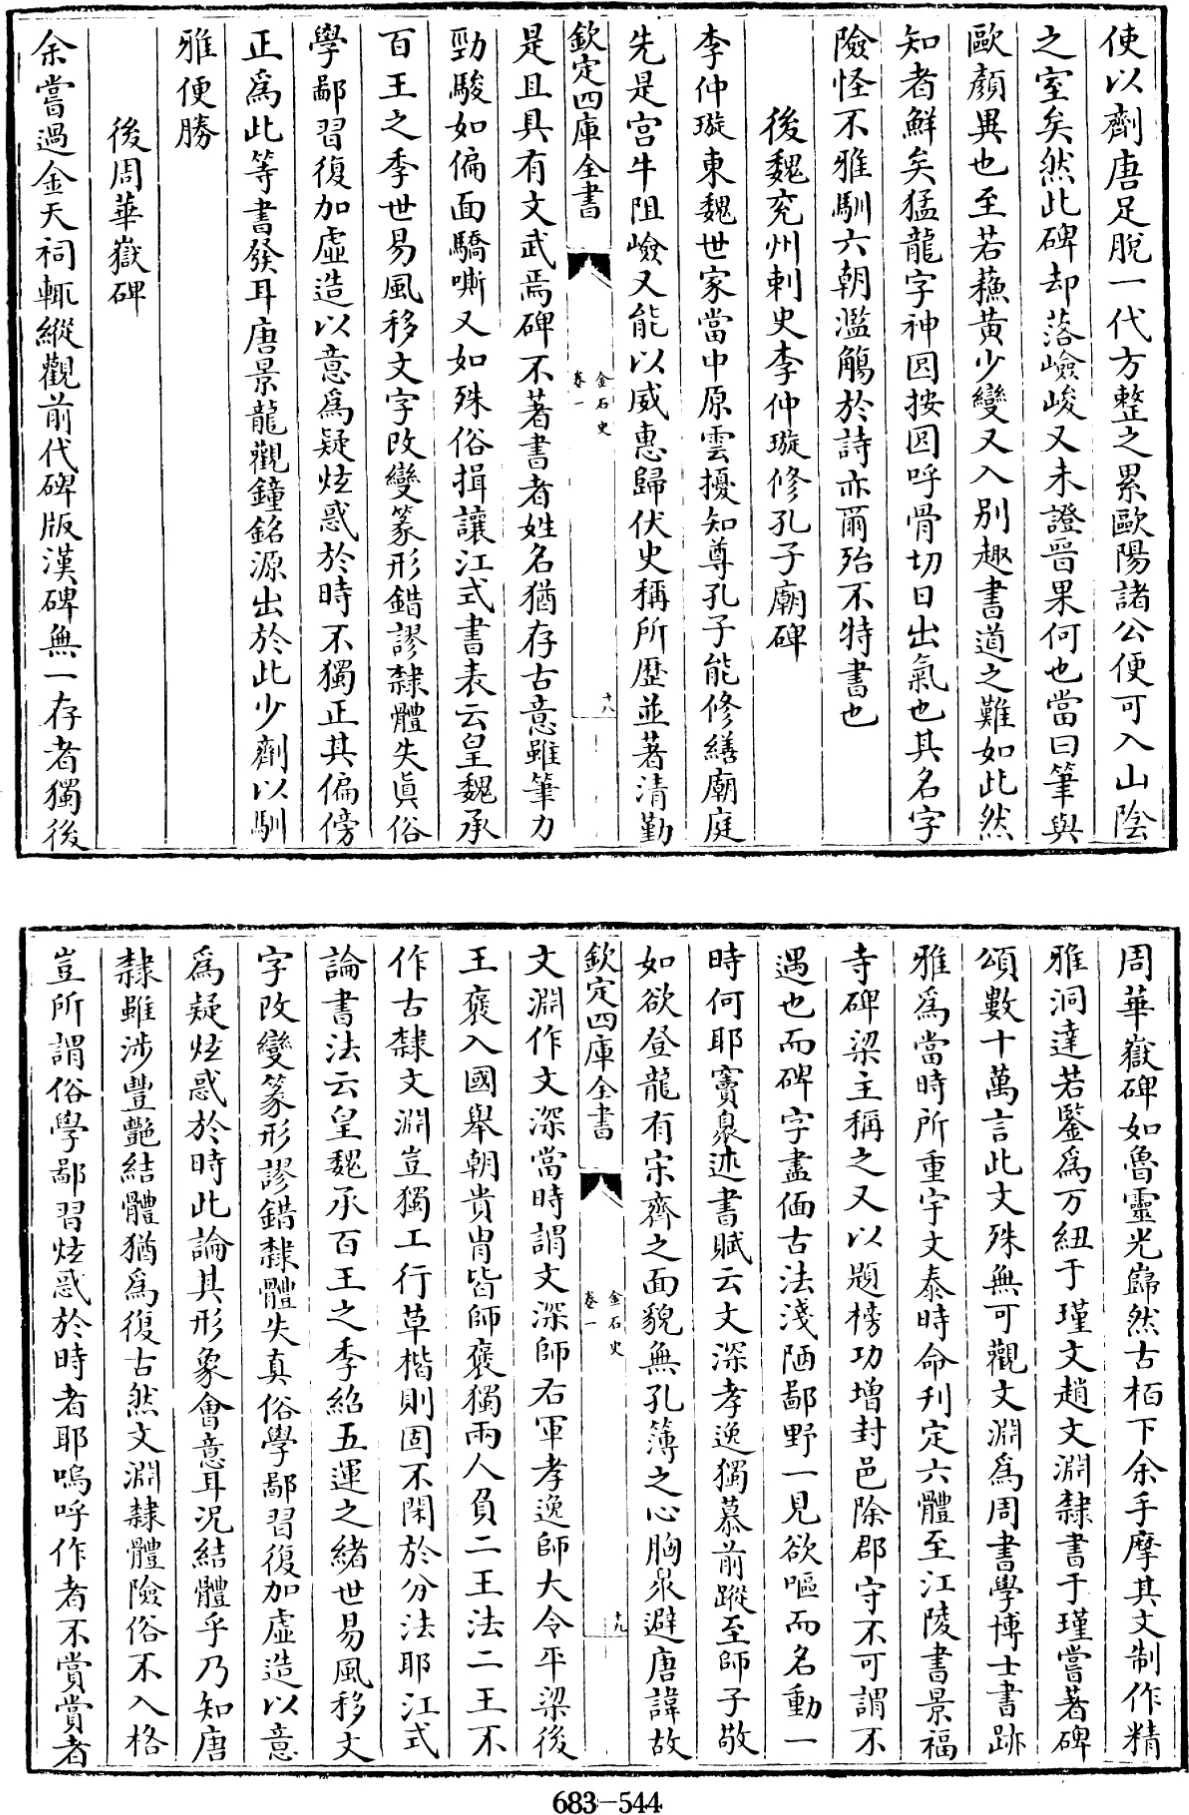 使以劑唐足脫一代方整之累歐陽諸公便可入山陰
之室矣然此碑却落嶮峻又未證晉果何也當曰筆與
歐顏異也至若蘓黃少變又入別趣書道之難如此然
知者鮮矣猛龍字神囦按囦呼骨切日出氣也其名字
險怪不雅馴六朝濫觴於詩亦爾殆不特書也
後魏兖州刺史李仲璇修孔子廟碑
李仲璇東魏世家當中原雲擾知尊孔子能修繕廟庭
先是宫牛阻嶮又能以威惠歸伏史稱所歴並著清勤
欽定四庫全書
金石史
卷一
十八
是且具有文武焉碑不著書者姓名猶存古意雖筆力
勁駿如偏面驕嘶又如殊俗揖讓江式書表云皇魏承
百王之季世易風移文字改變篆形錯謬隸體失眞俗
學鄙習復加虛造以意爲疑炫惑於時不獨正其偏傍
正爲此等書發耳唐景龍觀鐘銘源出於此少劑以馴
雅便勝
後周華嶽碑
余嘗過金天祠輒縱觀前代碑版漢碑無一存者獨後
周華嶽碑如魯靈光巋然古栢下余手摩其文制作精
雅洞達若鑒爲万紐于瑾文趙文淵隸書于瑾嘗著碑
頌數十萬言此文殊無可觀文淵爲周書學博士書跡
雅爲當時所重宇文泰時命刊定六體至江陵書景福
寺碑梁主稱之又以題榜功增封邑除郡守不可謂不
遇也而碑字盡偭古法淺陋鄙野一見欲嘔而名動一
時何耶竇泉述書賦云文深孝逸獨慕前蹤至師子敬
如欲登龍有宋齊之面貌無孔薄之心胸泉避唐諱故
欽定四庫全書
金石史
卷一
十九
文淵作文深當時謂文深師右軍孝逸師大令平梁後
王褒入國舉朝貴胄皆師褒獨兩人負二王法二王不
作古隸文淵豈獨工行草楷則固不閑於分法耶江式
論書法云皇魏承百王之季紹五運之緒世易風移文
字改變篆形謬錯隸體失真俗學鄙習復加虛造以意
爲疑炫惑於時此論其形象會意耳况結體乎乃知唐
隸雖涉豐艶結體猶爲復古然文淵隸體險俗不入格
豈所謂俗學鄙習炫惑於時者耶嗚呼作者不賞賞者
683-544